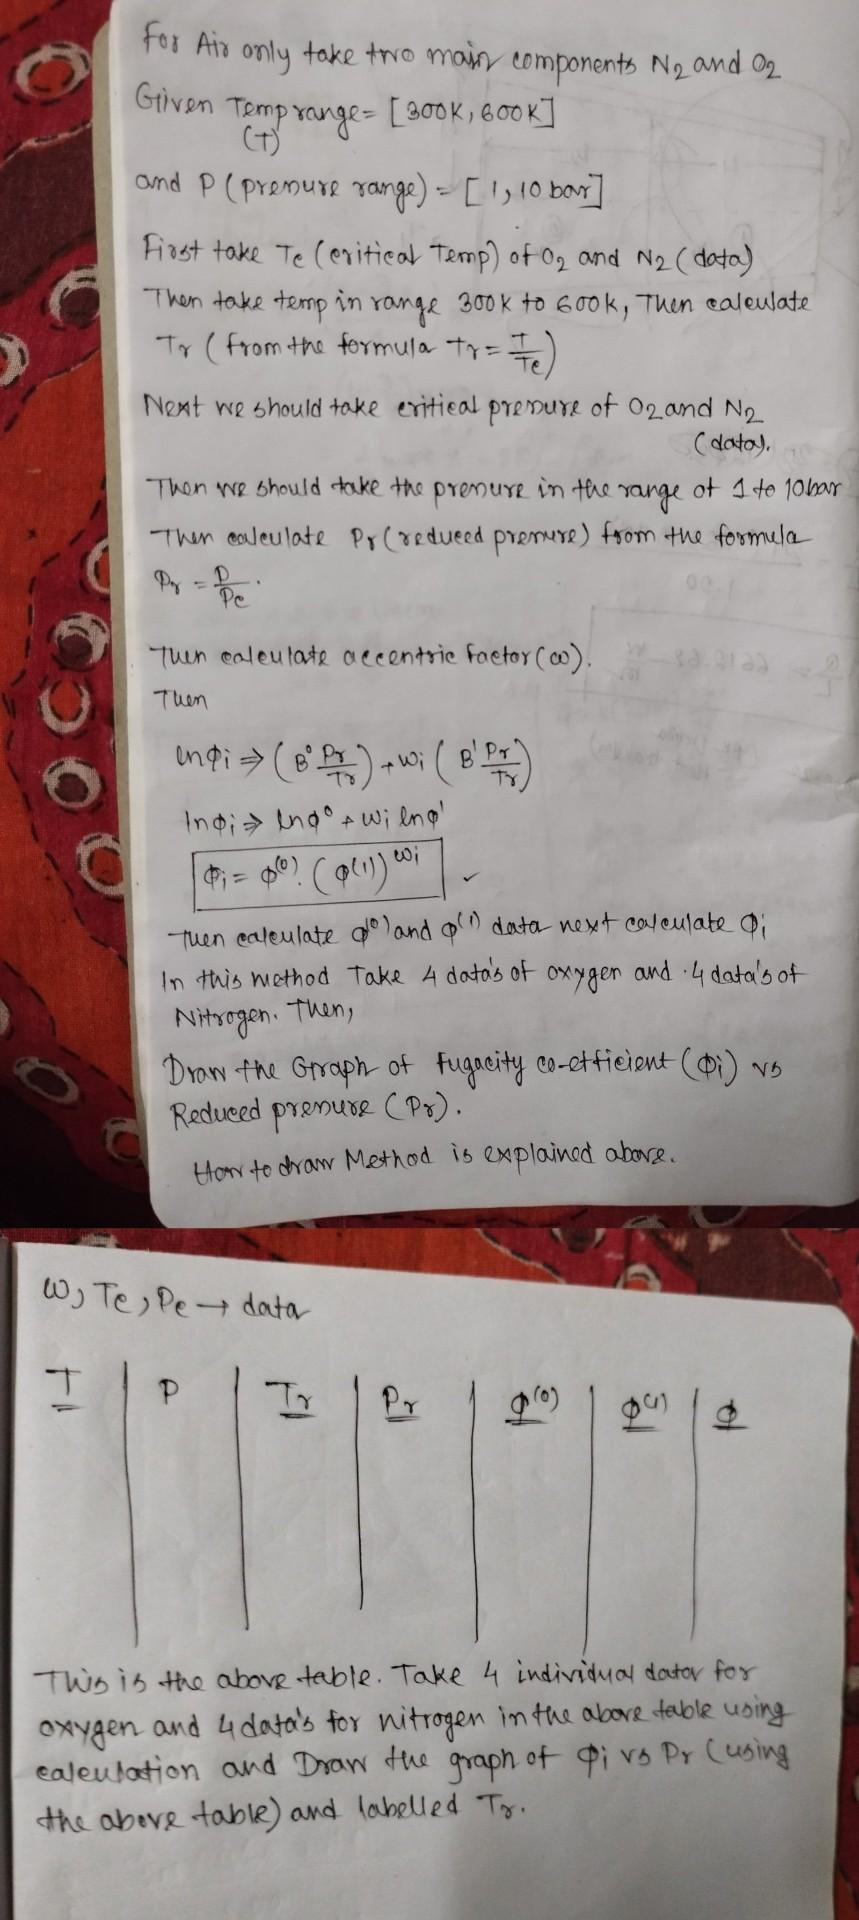 For Air only take two main components N2 and O2
Given Temp range = [300K, 600K]
(T)
and P (pressure range) = [1, 10 bar]
First take Tc (critical Temp) of O2 and N2 (data)
Then take temp in range 300K to 600K, Then calculate
Tr (from the formula Tr = T/Tc)
Next we should take critical pressure of O2 and N2
(data).
Then we should take the pressure in the range of 1 to 10bar
Then calculate Pr (reduced pressure) from the formula
Pr = P/Pc.
Then calculate accentric factor (ω).
Then
lnφi ⇒ (B° Pr/Tr) + ωi (B' Pr/Tr)
lnφi ⇒ lnφ° + ωi lnφ'
φi = φ(0). (φ(1))ωi ✓
Then calculate φ(0) and φ(1) data next calculate φi
In this method Take 4 data's of oxygen and 4 data's of
Nitrogen. Then,
Draw the Graph of fugacity co-efficient (φi) vs
Reduced pressure (Pr).
How to draw Method is explained above.
ω, Tc, Pc → data
T P Tr Pr φ(0) φ(1) φ
This is the above table. Take 4 individual data for
oxygen and 4 data's for nitrogen in the above table using
calculation and Draw the graph of φi vs Pr (using
the above table) and labelled Tr.